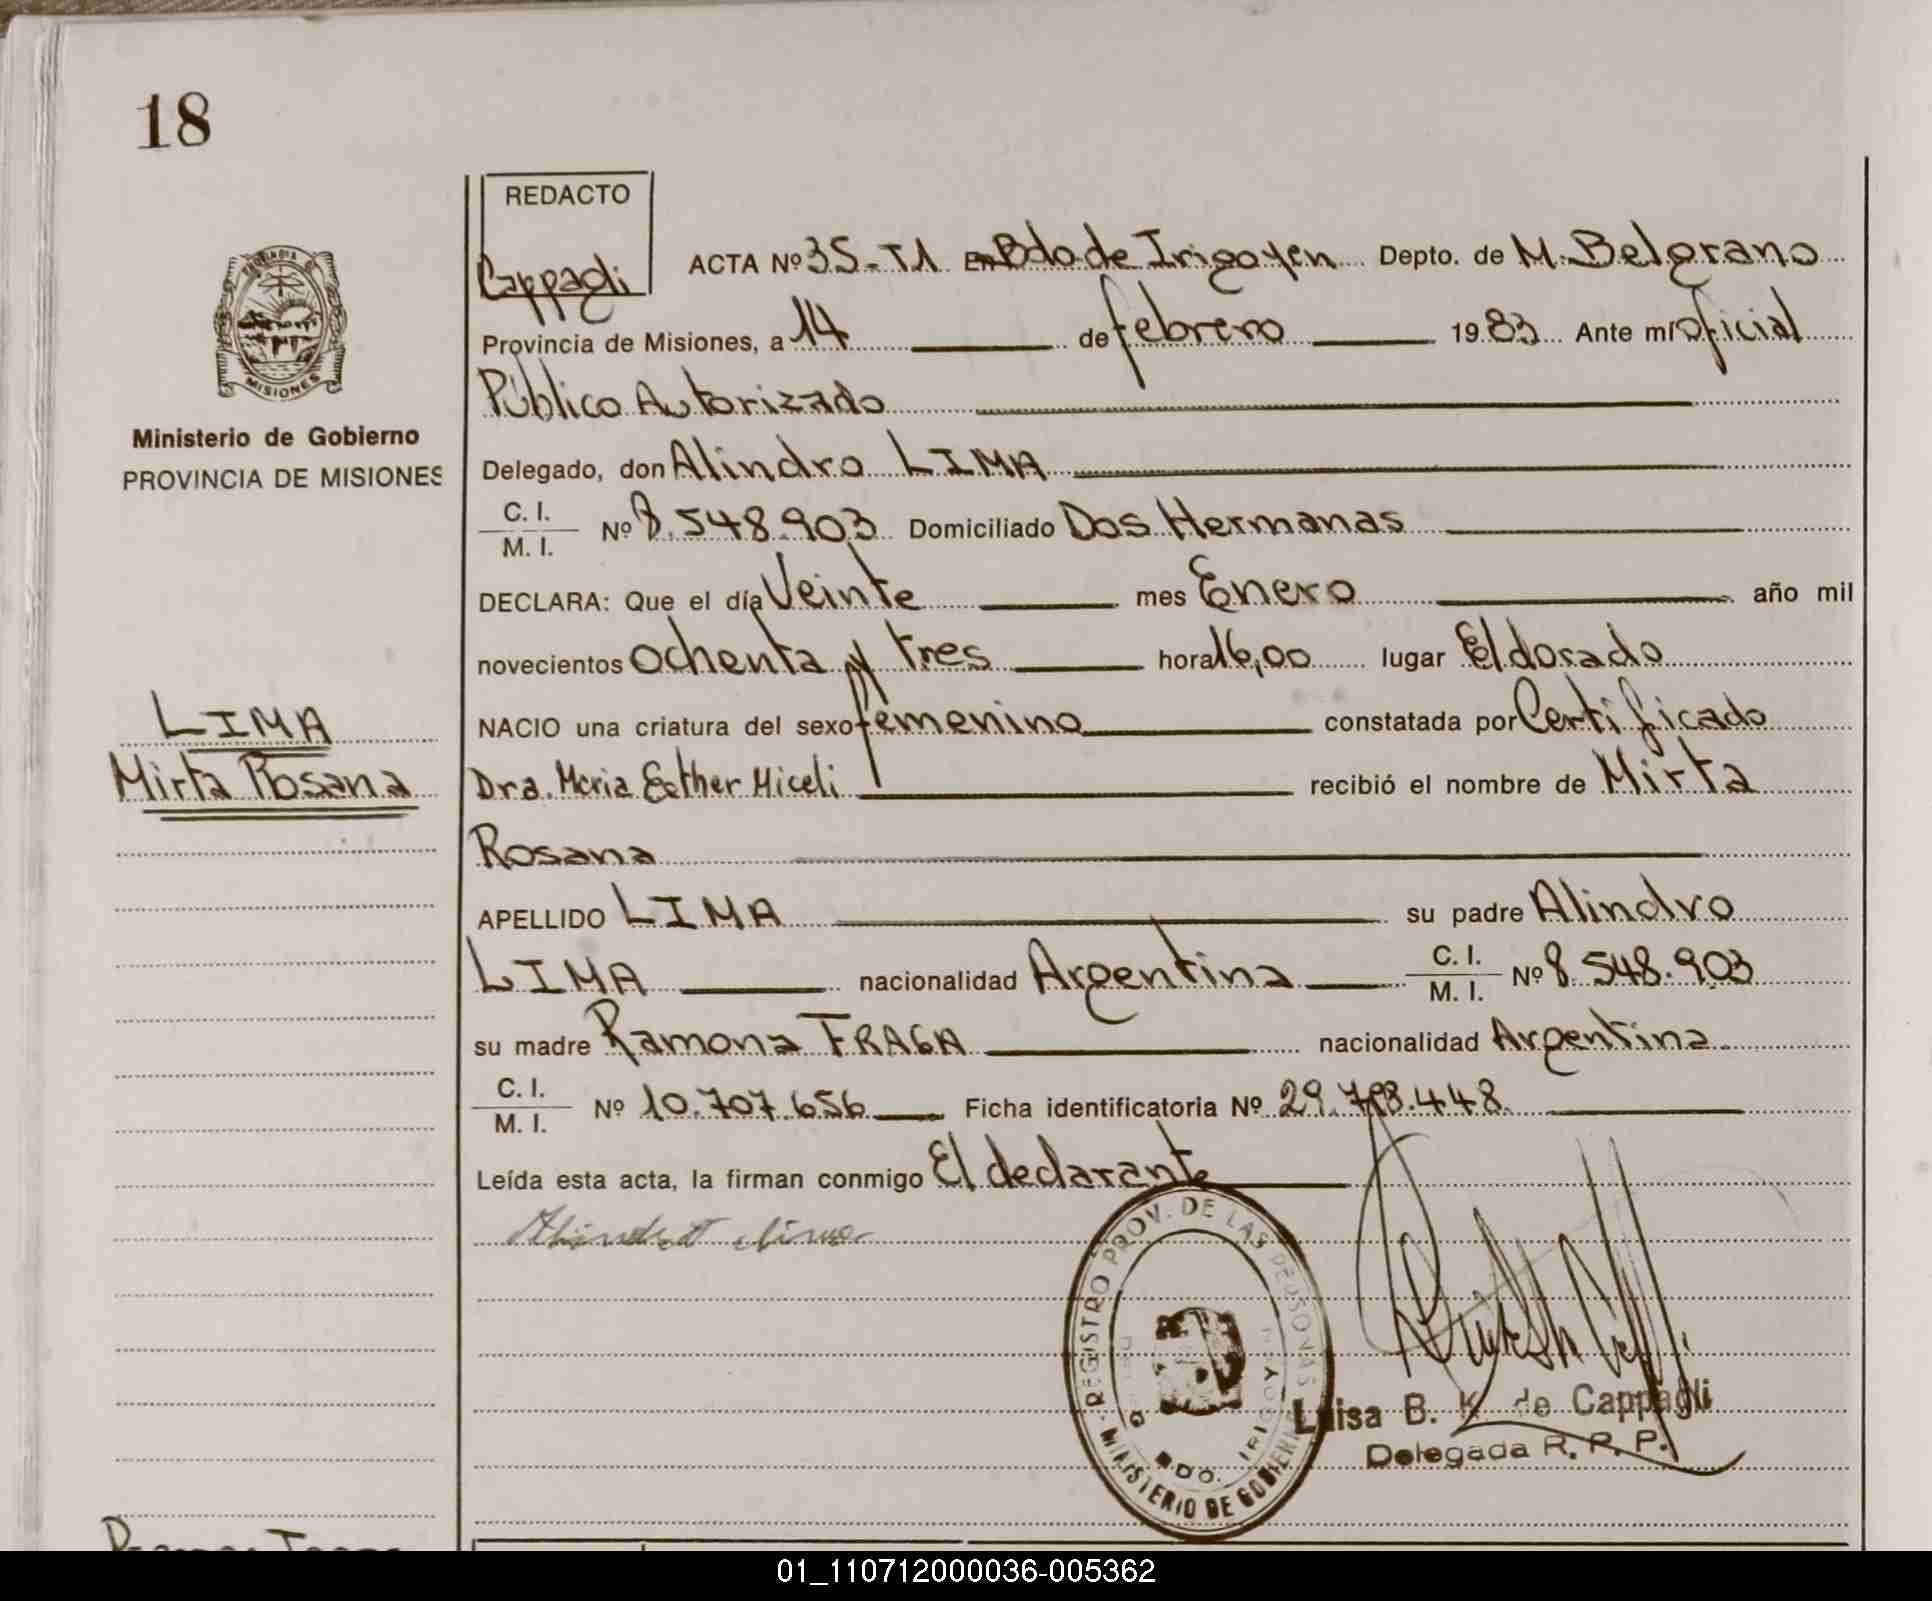 18
REDACTO
Cappagli
ACTA Nº 35-T1 EN Bdo de Irigoyen Depto. de M. Belgrano
Provincia de Misiones, a 14 de febrero 1983 Ante mí oficial
Público Autorizado
Delegado, don Alindro LIMA
C. I.
M. I.
Nº 8.548.903 Domiciliado Dos Hermanas
DECLARA: Que el día Veinte mes Enero año mil
novecientos ochenta y tres hora 16,00 lugar Eldorado
NACIO una criatura del sexo femenino constatada por Certificado
Dra. Maria Esther Miceli recibió el nombre de Mirta
Rosana
APELLIDO LIMA su padre Alindro
LIMA nacionalidad Argentina C. I.
M. I. Nº 8.548.903
su madre Ramona FRAGA nacionalidad Argentina
C. I.
M. I.
Nº 10.707.656 Ficha identificatoria Nº 29.7 .448
Leída esta acta, la firman conmigo El declarante
Alindro Lima
MISIONES
Ministerio de Gobierno
PROVINCIA DE MISIONES
LIMA
Mirta Rosana
REGISTRO PROV. DE LAS PERSONAS
MINISTERIO DE GOBIERNO
BDO. IRIGOYEN
Luisa B. K. de Cappagli
Delegada R. P. P.
01_110712000036-005362